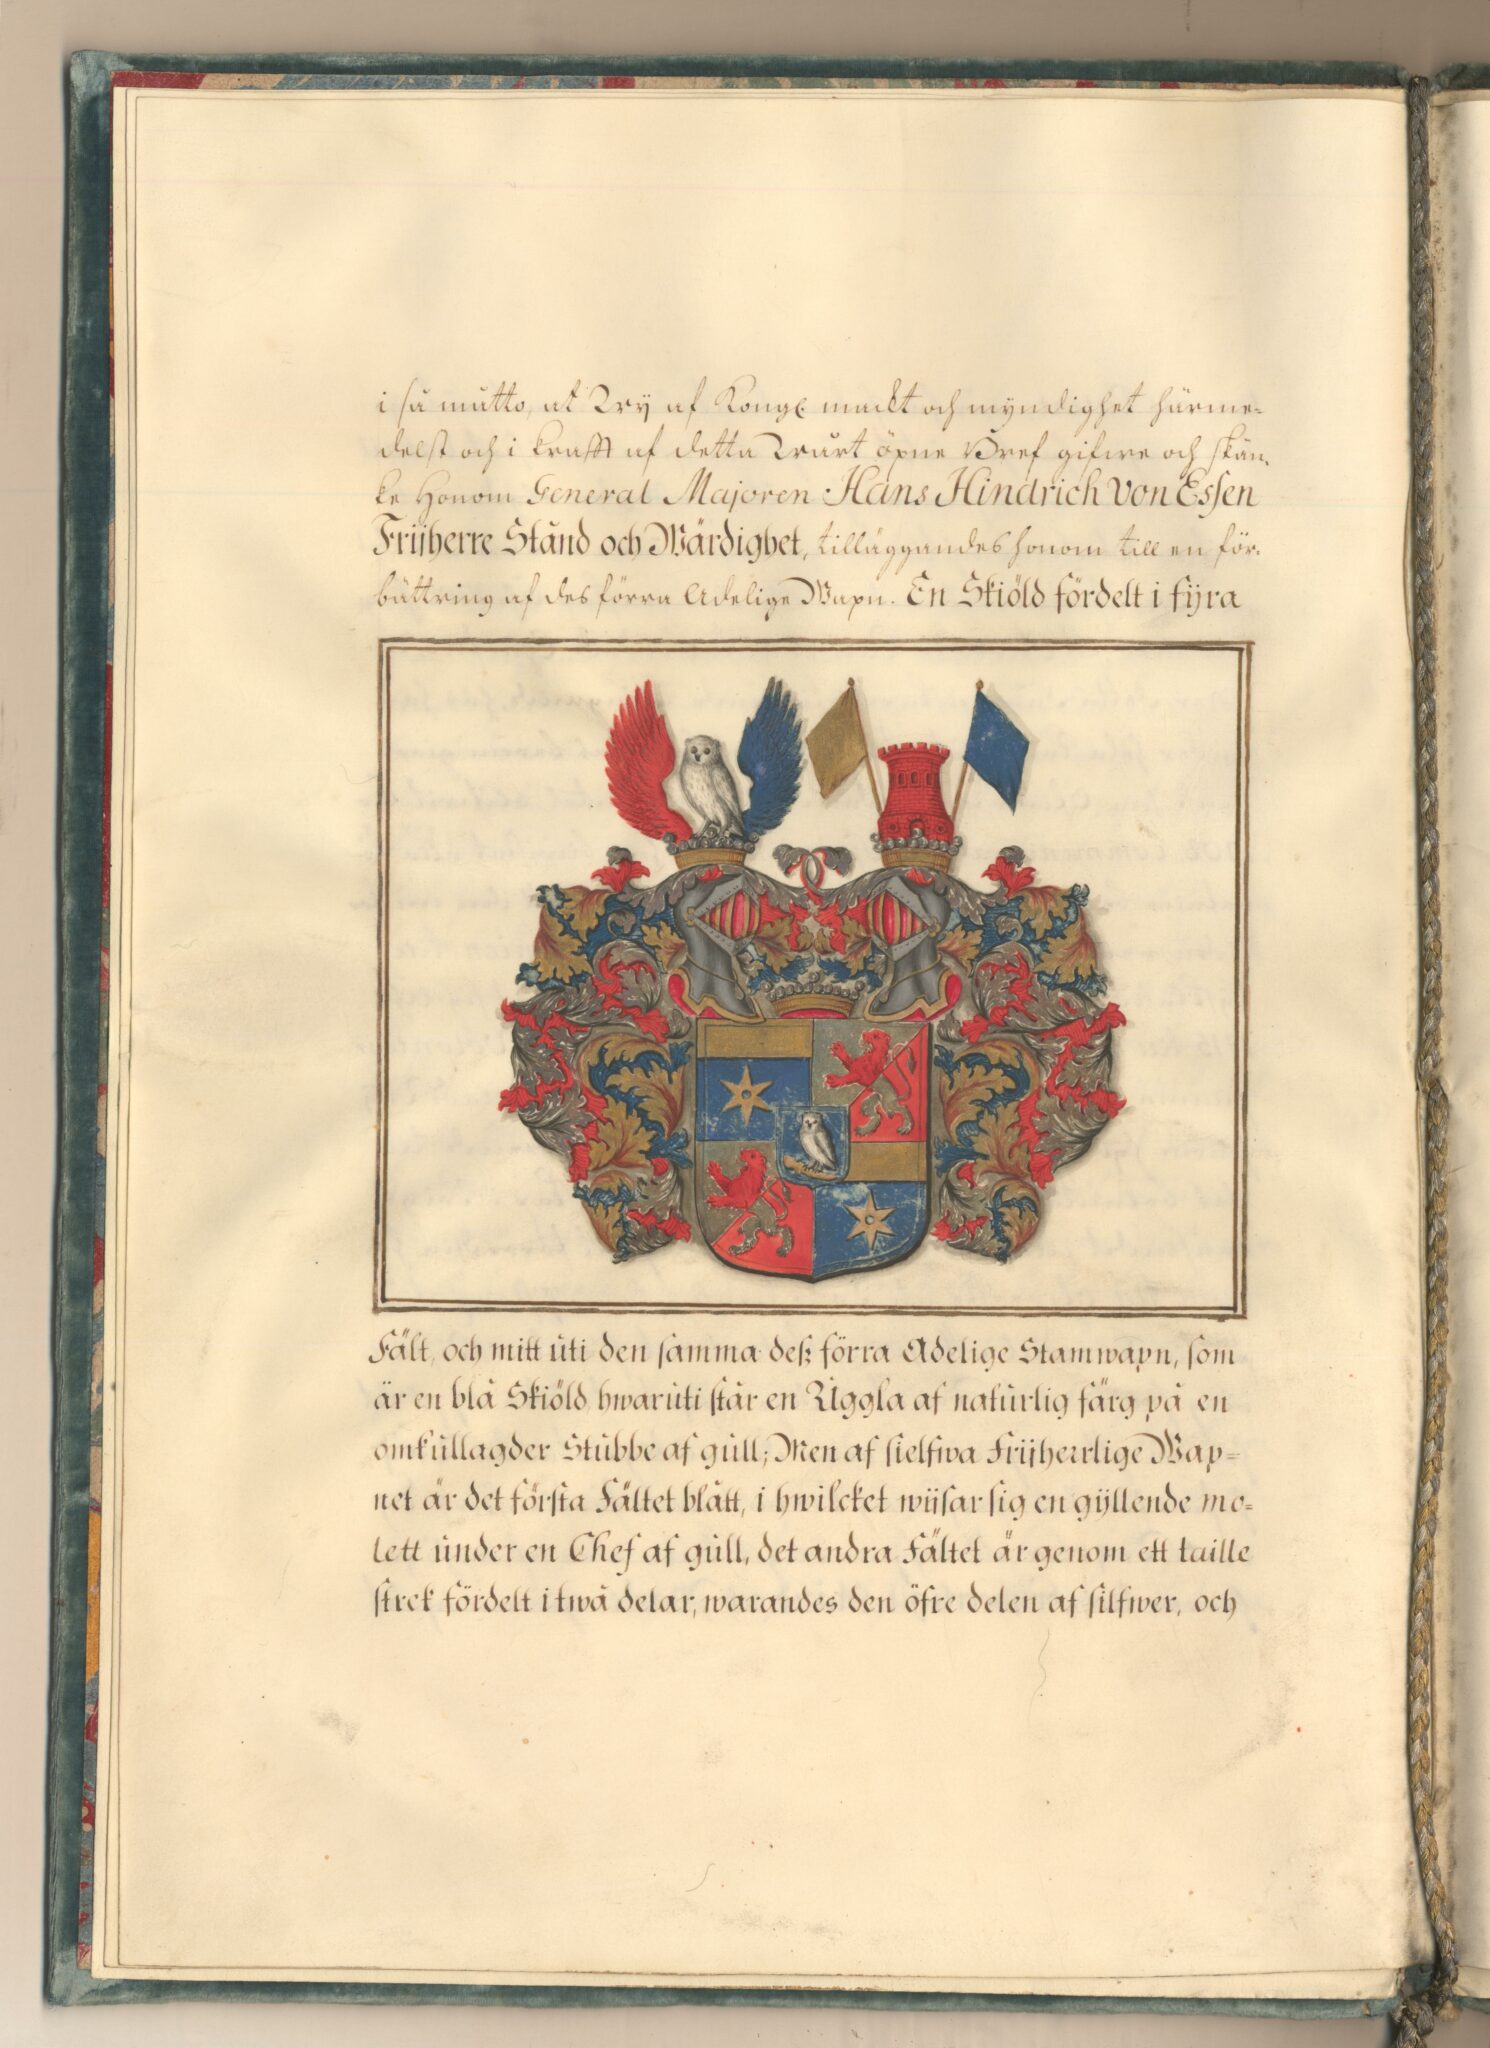 i så måtto, at Wy af Kongl. mackt och myndighet härme-
delst och i krafft af detta Wårt öpne Bref gifwe och skän-
ke Honom General Majoren Hans Hindrich von Essen
Frijherre Stånd och Wärdighet, tilläggandes honom till en för-
bättring af des förra Adelige Wapn. En Skiöld fördelt i fyra
Fält, och mitt uti den samma deß förra Adelige Stamwapn, som
är en blå Skiöld hwaruti står en Uggla af naturlig färg på en
omkullagder Stubbe af gull; Men af sielfwa Frijherrlige Wap-
net är det första Fältet blått, i hwilcket wiisar sig en gyllende mo-
lett under en Chef af gull, det andra Fältet är genom ett taille
strek fördelt i twå delar, warandes den öfre delen af silfwer, och